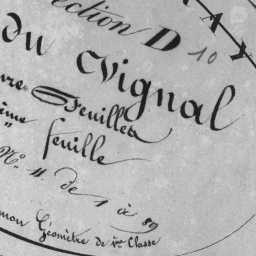 ection D 10
du Vignal
Feuilles
feuille
N° 11 de 1 à 89
Géomètre de 1re Classe